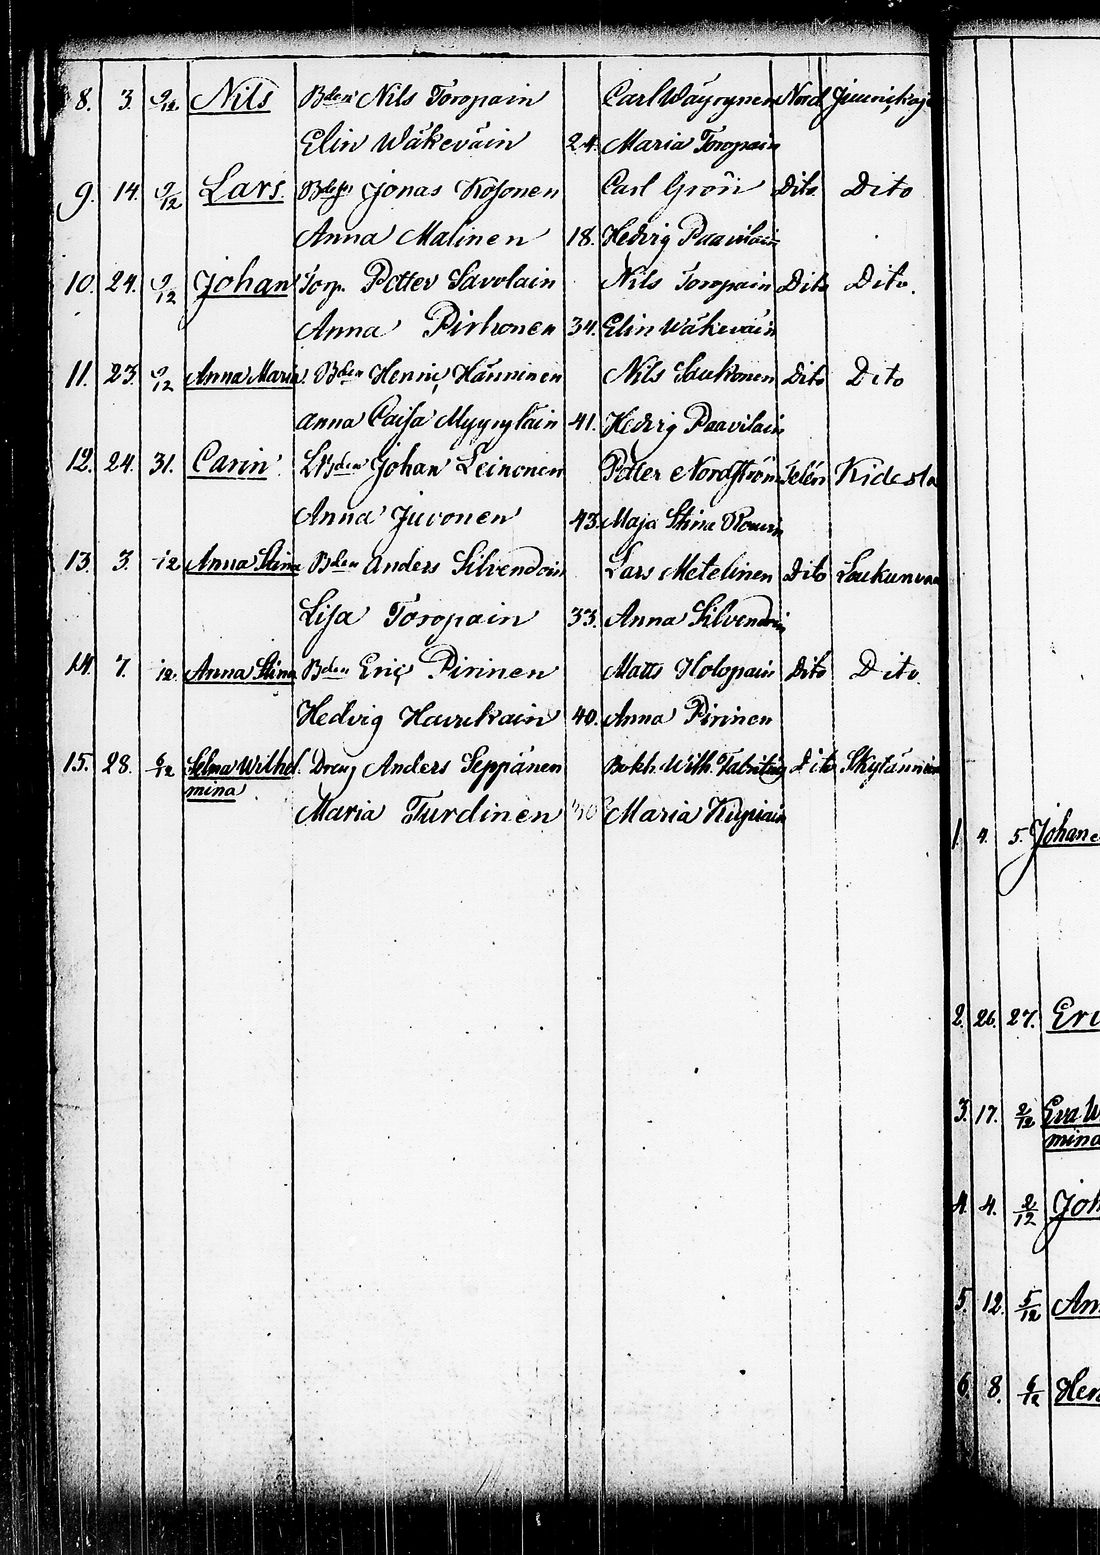 8. 3. 9/12 Nils Bden Nils Toropain Carl Wäyrynen Nord
Elin Wäkeväin 24. Maria Toropain
9. 14. 9/12 Lars. Jonas Kosonen Carl Grön Dito Dito
Anna Malinen 18. Hedvig Paavilain
10. 24. 9/12 Johan Torp. Petter Savolain Nils Toropain Dito Dito.
Anna Pirhonen 34. Elin Wäkeväin
11. 23. 9/12 Anna Maria Bden Henric Hänninen Nils Saukonen Dito Dito
Anna Caisa Myyryläin 41. Hedvig Paavilain
12. 24. 31. Carin LBden Johan Leinonen Petter Nordström Telén
Anna Juvonen 43. Maja Stina
13. 3. Anna Stina Bden Anders Silvendoin Lars Metelinen Dito
Lisa Toropain 33. Anna Silvendoin
14. 7. Anna Stina Bden Eric Pirinen Matts Holopain Dito Dito
Hedvig Haurukain 40. Anna Pirinen
15. 28. 6/12 Selma Wilhel- Dreng Anders Seppänen Bokh. Wilh. Dito
mina
Maria Turdinen Maria Kupiain
1. 4. 5. Johan
2. 26. 27.
3. 17. 2/12 Eva
mina
4. 4. 2/12
5. 12. 5/12
6. 8. 6/12